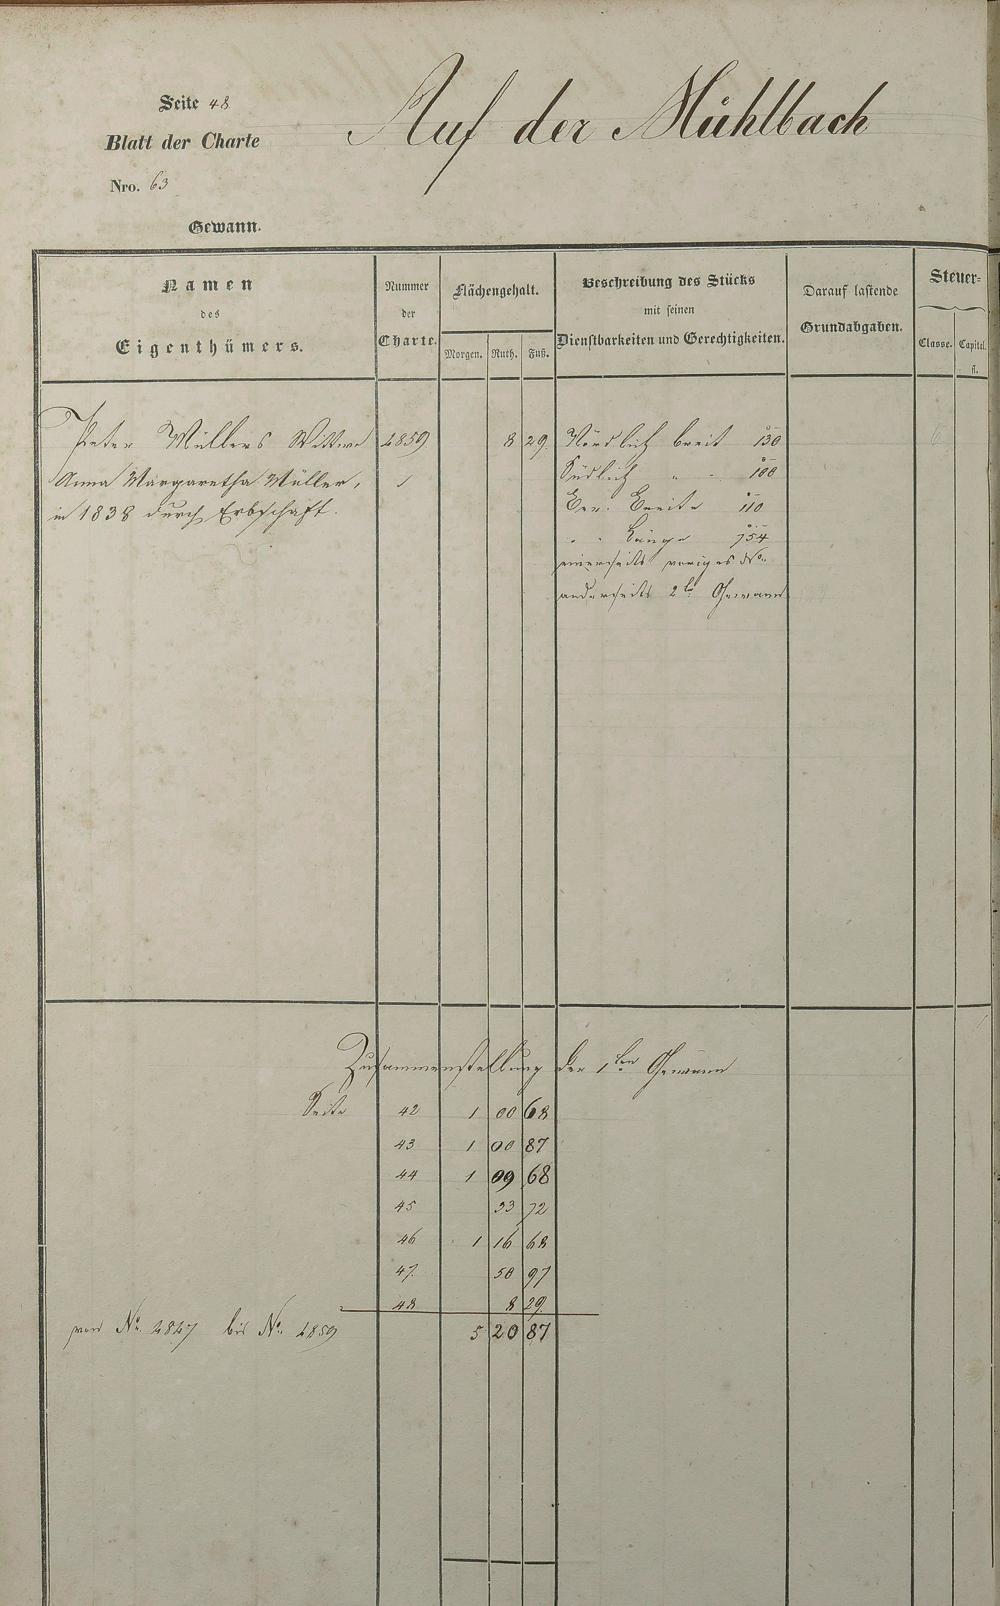 Seite 48
Blatt der Charte
Nro. 63
Auf der Mühlbach
Gewann.
Namen
des
Eigenthümers.
Nummer
der
Charte.
Flächengehalt.
Morgen. Ruth. Fuß.
Beschreibung des Stücks
mit seinen
Dienstbarkeiten und Gerechtigkeiten.
Darauf lastende
Grundabgaben.
Steuer-
Classe. Capital.
fl.
Peter Müllers Wittwe 4859 8 29. Nördlich breit 130
Anna Margaretha Müller, Südlich " - 100
in 1838 durch Erbschaft. Ber. Breite 110
" " Länge 754
einerseits voriges No.
anderseits 2te Gewann
Zusammenstellung der 1ten Gewann
Seite 42 1 00 68
43 1 00 87
44 1 09 68
45 33 72
46 1 16 68
47. 50 97
48 8 29.
von No. 4847 bis No. 4859 5 20 87